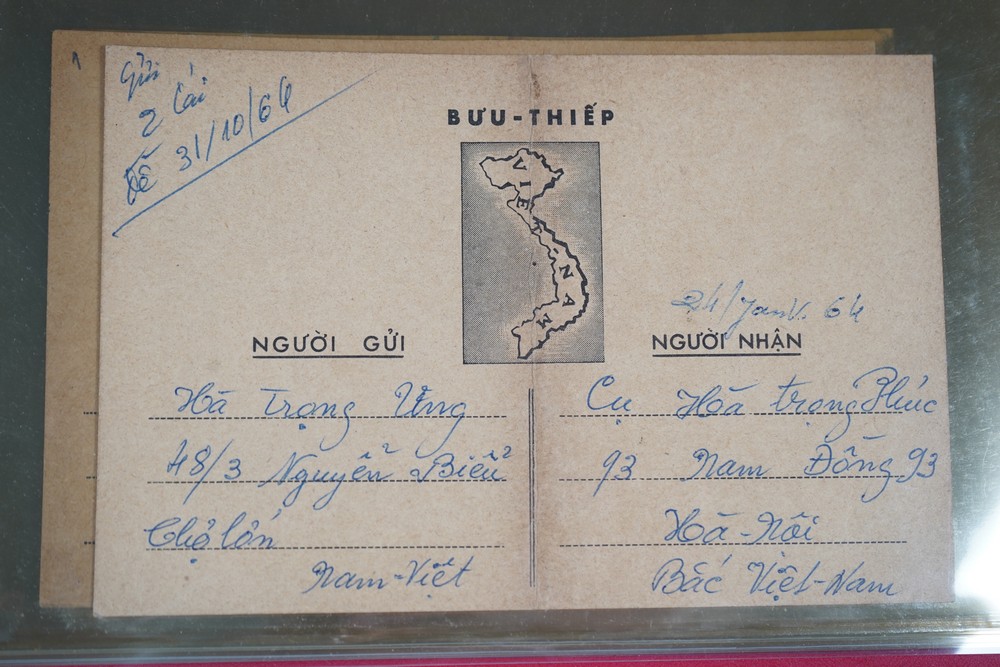 Gửi
2 cái
31/10/64
BƯU-THIẾP
VIỆT-NAM
24/Janv. 64
NGƯỜI GỬI
NGƯỜI NHẬN
Hà Trọng Ưng
48/3 Nguyễn Biểu
Chợ lớn
Nam-Việt
Cụ Hà Trọng Phúc
93 Nam Đồng 93
Hà-Nôi
Bắc Việt-Nam